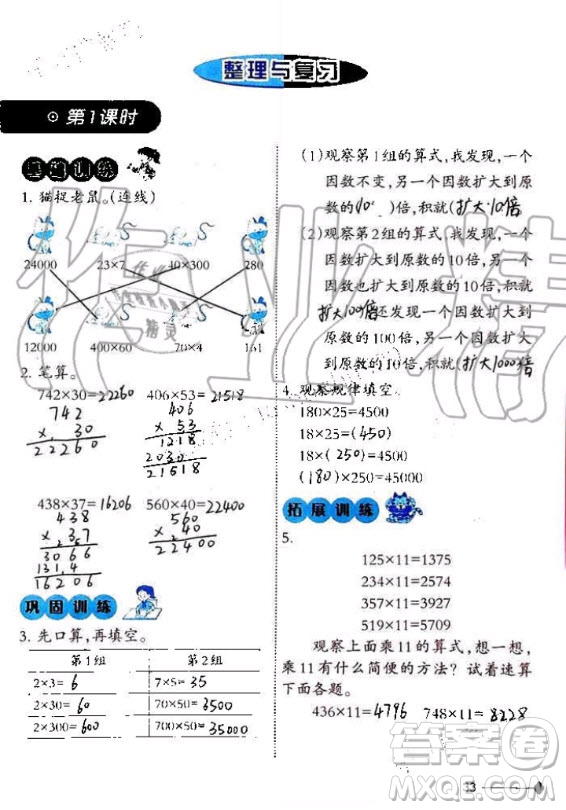 整理与复习
第1课时
基础训练
1. 猫捉老鼠。(连线)
24000 23×7 40×300 280
12000 400×60 70×4 161
2. 笔算。
742×30=22260 406×53=21518
742
× 30
22260
406
× 53
1218
2030
21518
438×37=16206 560×40=22400
438
× 37
3066
1314
16206
560
× 40
22400
巩固训练
3. 先口算,再填空。
第1组 第2组
2×3=6 7×5=35
2×30=60 70×50=3500
2×300=600 700×50=35000
(1)观察第1组的算式,我发现,一个
因数不变,另一个因数扩大到原
数的(10)倍,积就(扩大10倍
(2)观察第2组的算式,我发现,一个
因数扩大到原数的10倍,另一个
因数也扩大到原数的10倍,积就
扩大100倍还发现一个因数扩大到
原数的100倍,另一个因数扩大到
原数的10倍,积就(扩大1000倍
4. 观察规律填空。
180×25=4500
18×25=(450)
18×(250)=4500
(180)×250=45000
拓展训练
5.
125×11=1375
234×11=2574
357×11=3927
519×11=5709
观察上面乘11的算式,想一想,
乘11有什么简便的方法?试着速算
下面各题。
436×11=4796 748×11=8228
13
作业精灵
答案圈
MXQE.COM